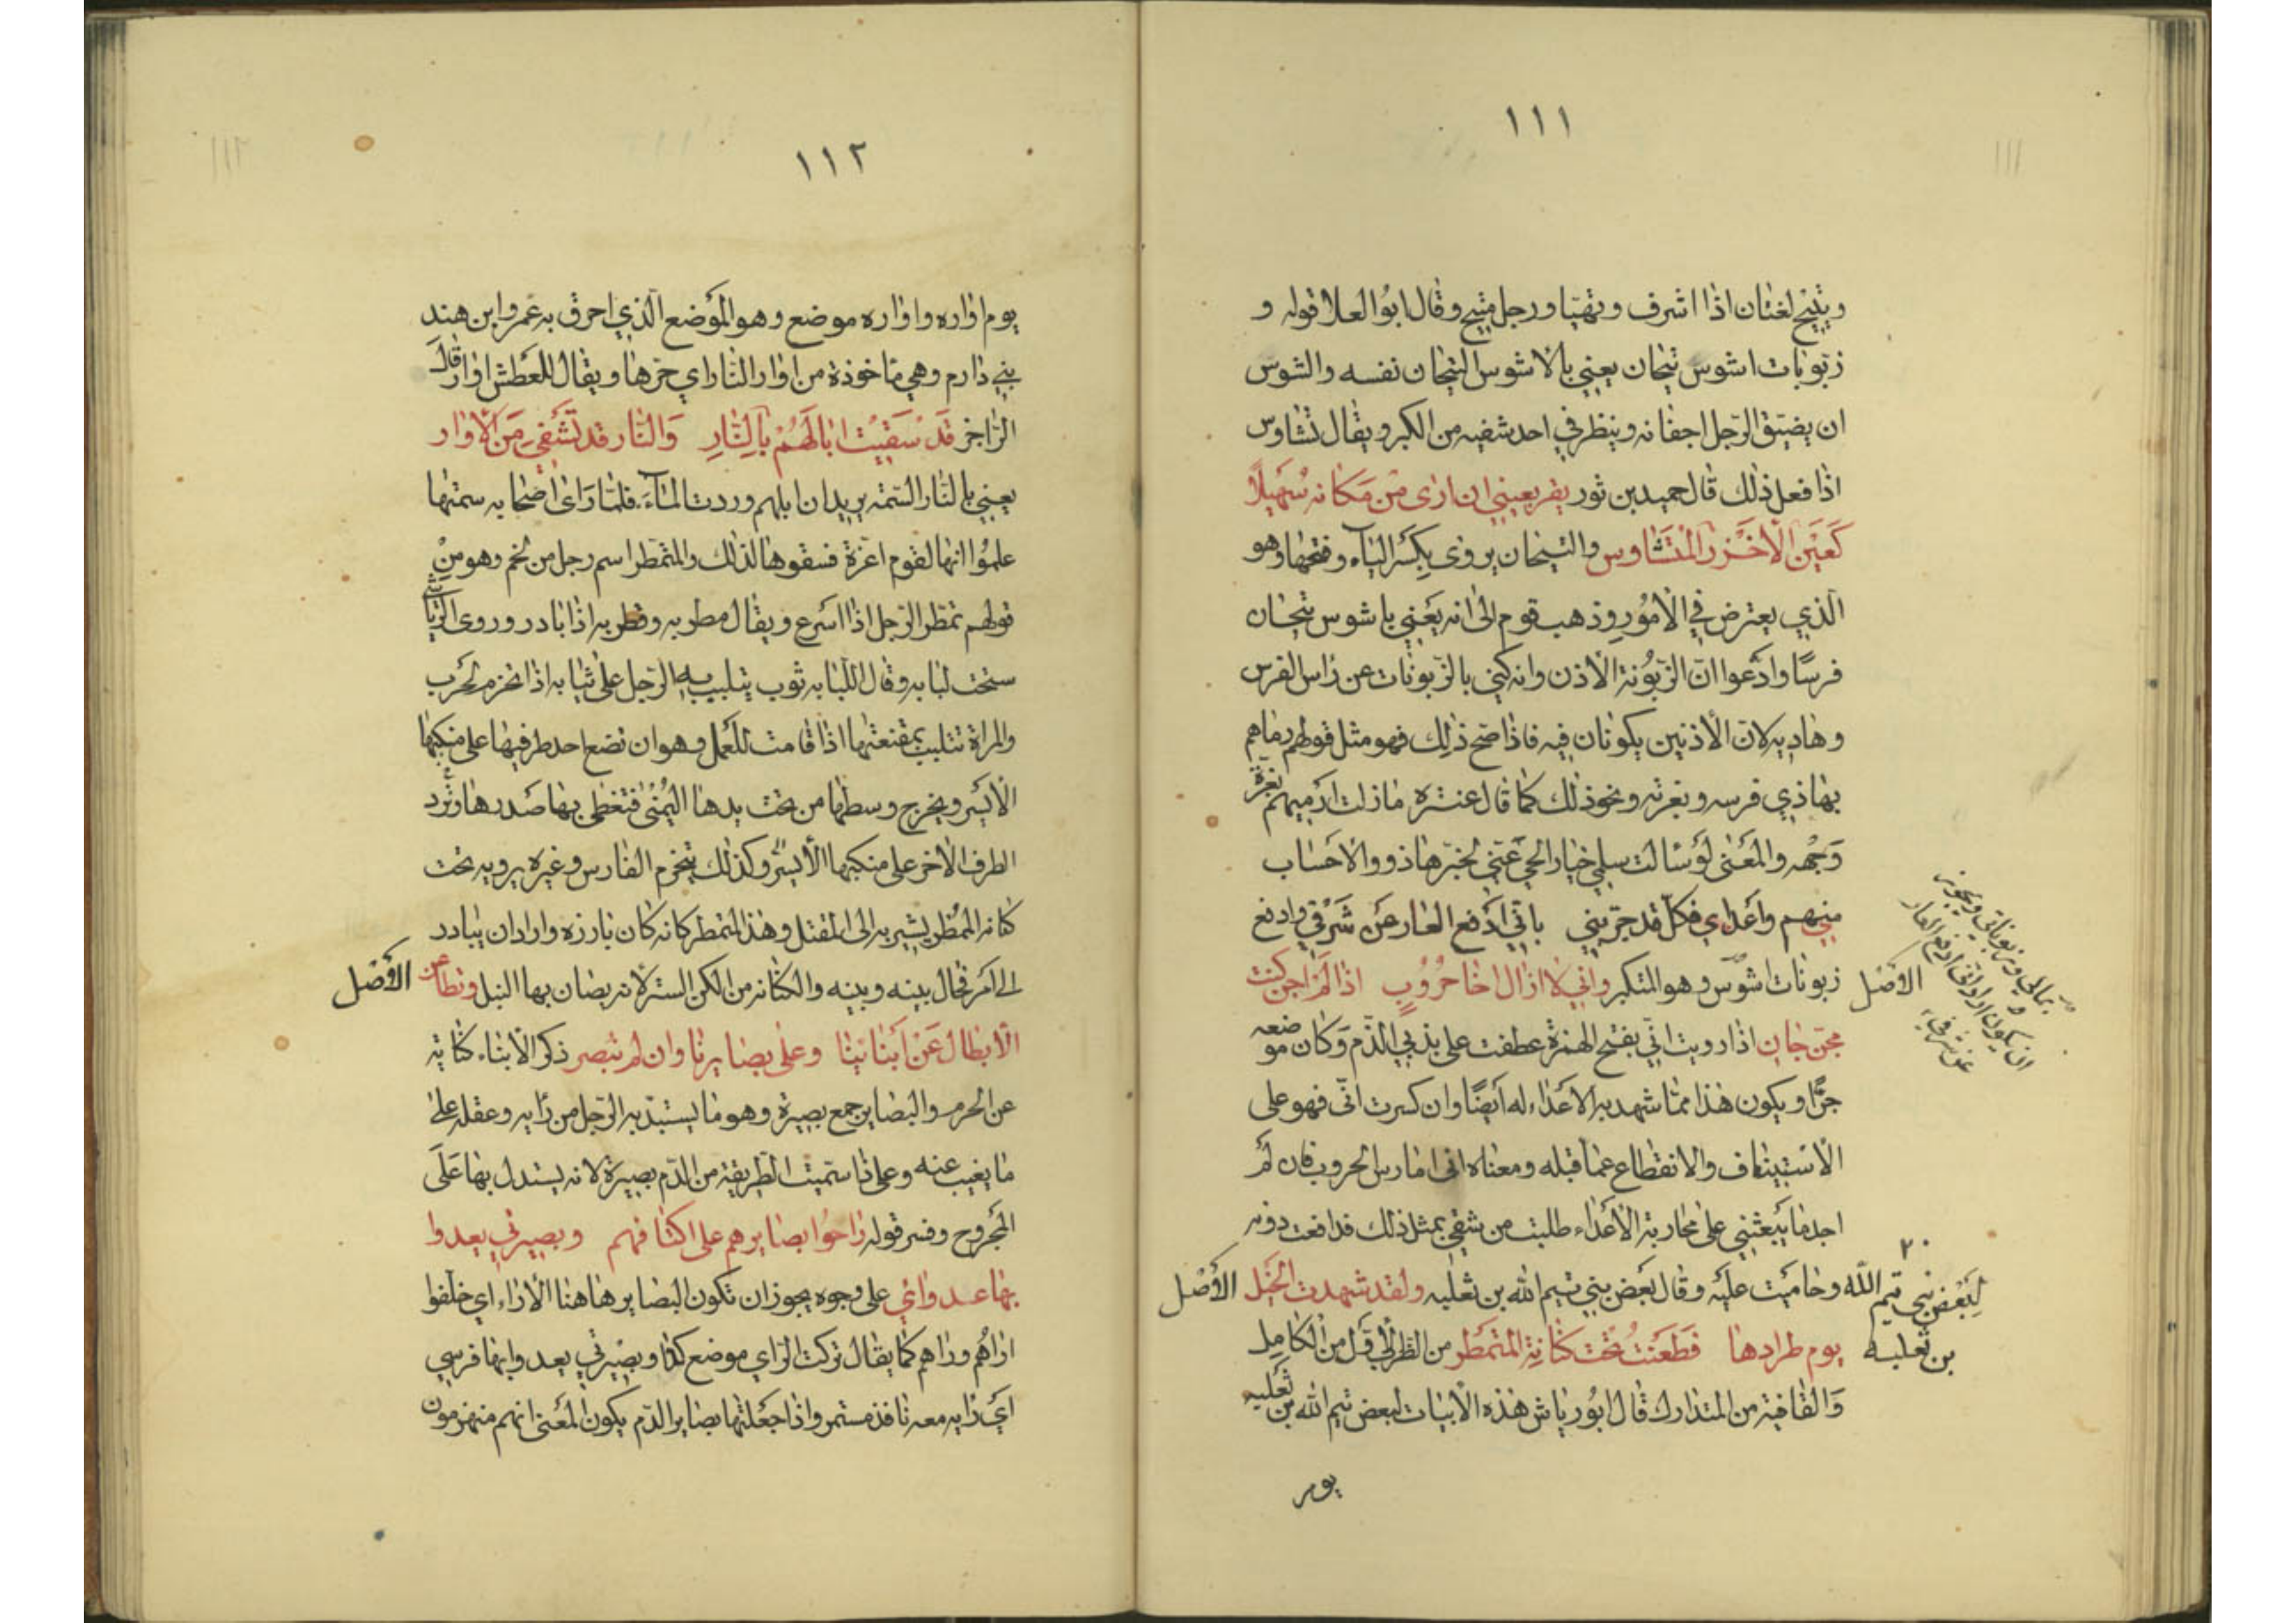 ١١١
ويتيح لغتان اذا اشرف وتهيا ورجل متيح وقال ابو العلا قوله و
زبونات اشوس تيحان يعني بالاشوس التيحان نفسه والشوس
ان يضيق الرجل اجفانه وينظر في احد شقيه من الكبر ويقال تشاوس
اذا فعل ذلك قال حميد بن ثور يقر بعيني ان ارى من مكانه سهيلا
كعين الاخزر المتشاوس والتيحان يروى بكسر الياء وفتحها وهو
الذي يعترض في الامور وذهب قوم الى انه يعني باشوس تيحان
فرسًا وادعوا ان الزبونة الاذن وانه كنى بالزبونات عن راس الفرس
وهاديه لان الاذنين يكونان فيه فاذا صح ذلك فهو مثل قولهم رماهم
بهاذي فرسه وبغرته ونحو ذلك كما قال عنتره مازلت ارميهم بغرة
وجهه والمعنى لو سالت سلمى خيار الحي عني لخبرها ذوو الاحساب
منهم واعداي فكل قد جربني باني ادفع العار عن شرفي وادفع
زبونات اشوس وهو المتكبر واني لا ازال اخا حروب اذا لم اجن كنت الاصل
مجن جان اذا رويت اني بفتح الهمزة عطفت على بذبي الذم وكان موضعه
جرًا ويكون هذا مما شهد به الاعداء له ايضًا وان كسرت اني فهو على
الاستيناف والانقطاع عما قبله ومعناه اني امارس الحروب فان لم
اجد ما يبعثني على محاربة الاعداء طلبت من شقي بمثل ذلك فدافعت دونه
وحاميت عليه وقال بعض بني تيم الله بن ثعلبه ولقد شهدت الخيل الاصل
يوم طرادها فطعنت تحت كنانة المتمطر من الكامل
والقافية من المتدارك قال ابو رياش هذه الابيات لبعض تيم الله بن ثعلبه
يوم
بمالي وزبوناتي ويجوز
ان يكون اراد اني ادفع العار
عن شرفي
الاصل
٢٠
لبعض بني تيم الله
بن ثعلبه
١١٢
يوم اواره واواره موضع وهو الموضع الذي احرق به عمرو ابن هند
بني دارم وهي ماخوذة من اوار النار اي حرها ويقال للعطش اوار قال
الراجز قد سقيت ابالهم بالنار والنار قد تشفي من الاوار
يعني بالنار السمة يريد ان ابلهم وردت الماء فلما راى اصحابه سمتها
علموا انها لقوم اعزة فسقوها لذلك والمتمطر اسم رجل من لخم وهو من
قولهم تمطر الرجل اذا اسرع ويقال مطر به وقطر به اذا بادر وروى الرياشي
تحت لبابه وقال اللبابه ثوب يتلبب به الرجل على ثيابه اذا تحزم لحرب
والمراة تتلبب بمقنعتها اذا قامت للعمل وهو ان تضع احد طرفيها على منكبها
الايسر ويخرج وسطها من تحت يدها اليمنى فتغطى بها صدرها وترد
الطرف الاخر على منكبها الايسر وكذلك يتخرم الفارس وغيره يرويه تحت
كنانه المتمطر يشير به الى المقتل وهذا المتمطر كانه كان بارزه واراد ان يبادر
الى امر فحال بينه وبينه والكنانه من الكن الستر لانه يصان بها النبل ونطاعن الاصل
الابطال عن ابنائنا وعلى بصايرنا وان لم نبصر ذكر الابناء كناية
عن الحرم والبصاير جمع بصيرة وهو ما يستبد به الرجل من رايه وعقله على
ما يغيب عنه وعلى ذا سميت الطريقة من الدم بصيرة لانه يستدل بها على
المجروح وفسر قوله راحوا بصايرهم على اكتافهم وبصيرتي يعدوا
بها عدواني على وجوه يجوز ان تكون البصاير هاهنا الاراء اي خلفوا
اراهم وراهم كما يقال تركت الراي موضع كذا وبصيرتي يعدوا بها فرسي
اي رايه معه نافذ مستمر واذا جعلتها بصاير الدم يكون المعنى انهم منهزمون